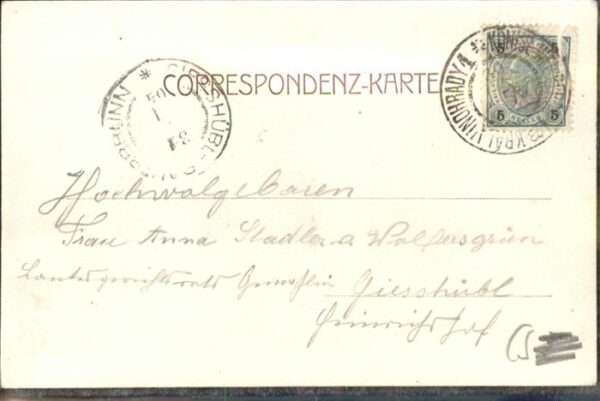 CORRESPONDENZ-KARTE
KRÁL. VINOHRADY 1
5 5
Hochwolgeboren
Frau Anna Stadler a Wolfersgrün
Landesgerichtsrats Gemahlin Giesshübl
Heinrichshof